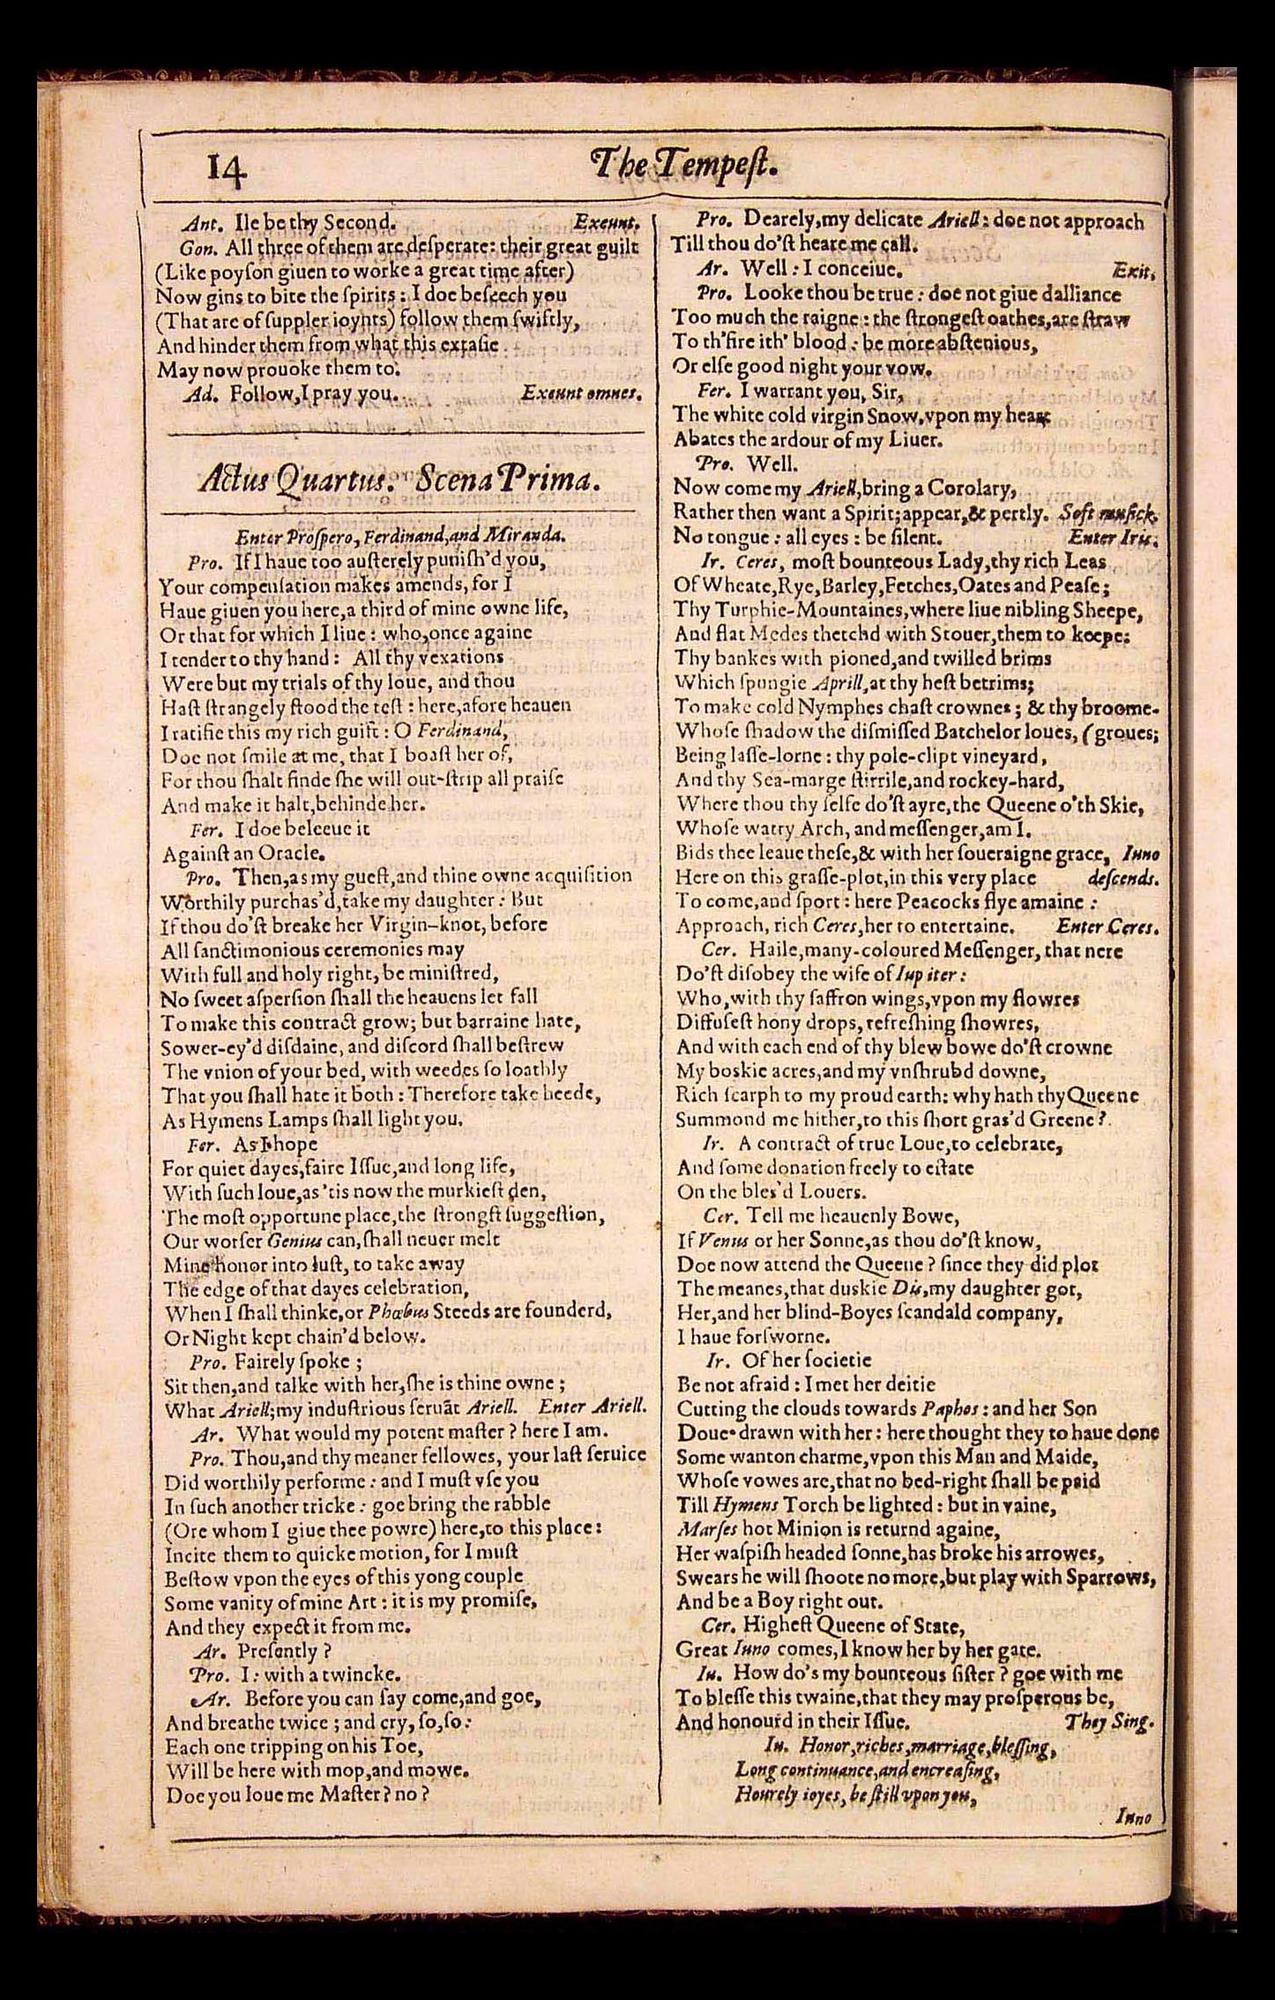 14
The Tempeſt.
Ant. Ile be thy Second. Exeunt.
Gon. All three of them are deſperate: their great guilt
(Like poyſon giuen to worke a great time after)
Now gins to bite the ſpirits: I doe beſeech you
(That are of ſuppler ioynts) follow them ſwiftly,
And hinder them from what this extaſie
May now prouoke them to.
Ad. Follow, I pray you. Exeunt omnes.
Actus Quartus. Scena Prima.
Enter Proſpero, Ferdinand, and Miranda.
Pro. If I haue too auſterely puniſh'd you,
Your compenſation makes amends, for I
Haue giuen you here, a third of mine owne life,
Or that for which I liue: who, once againe
I tender to thy hand: All thy vexations
Were but my trials of thy loue, and thou
Haſt ſtrangely ſtood the teſt: here, afore heauen
I ratifie this my rich guift: O Ferdinand,
Doe not ſmile at me, that I boaſt her of,
For thou ſhalt finde ſhe will out-ſtrip all praiſe
And make it halt, behinde her.
Fer. I doe beleeue it
Againſt an Oracle.
Pro. Then, as my gueſt, and thine owne acquiſition
Worthily purchas'd, take my daughter: But
If thou do'ſt breake her Virgin-knot, before
All ſanctimonious ceremonies may
With full and holy right, be miniſtred,
No ſweet aſperſion ſhall the heauens let fall
To make this contract grow; but barraine hate,
Sower-ey'd diſdaine, and diſcord ſhall beſtrew
The vnion of your bed, with weedes ſo loathly
That you ſhall hate it both: Therefore take heede,
As Hymens Lamps ſhall light you.
Fer. As I hope
For quiet dayes, faire Iſſue, and long life,
With ſuch loue, as 'tis now the murkieſt den,
The moſt opportune place, the ſtrongſt ſuggeſtion,
Our worſer Genius can, ſhall neuer melt
Mine honor into luſt, to take away
The edge of that dayes celebration,
When I ſhall thinke, or Phœbus Steeds are founderd,
Or Night kept chain'd below.
Pro. Fairely ſpoke;
Sit then, and talke with her, ſhe is thine owne;
What Ariell; my induſtrious ſeruãt Ariell. Enter Ariell.
Ar. What would my potent maſter? here I am.
Pro. Thou, and thy meaner fellowes, your laſt ſeruice
Did worthily performe: and I muſt vſe you
In ſuch another tricke: goe bring the rabble
(Ore whom I giue thee powre) here, to this place:
Incite them to quicke motion, for I muſt
Beſtow vpon the eyes of this yong couple
Some vanity of mine Art: it is my promiſe,
And they expect it from me.
Ar. Preſently?
Pro. I: with a twincke.
Ar. Before you can ſay come, and goe,
And breathe twice; and cry, ſo, ſo:
Each one tripping on his Toe,
Will be here with mop, and mowe.
Doe you loue me Maſter? no?
Pro. Dearely, my delicate Ariell: doe not approach
Till thou do'ſt heare me call.
Ar. Well: I conceiue. Exit.
Pro. Looke thou be true: doe not giue dalliance
Too much the raigne: the ſtrongeſt oathes, are ſtraw
To th'fire ith' blood: be more abſtenious,
Or elſe good night your vow.
Fer. I warrant you, Sir,
The white cold virgin Snow, vpon my heart
Abates the ardour of my Liuer.
Pro. Well.
Now come my Ariell, bring a Corolary,
Rather then want a Spirit; appear, & pertly. Soft muſick.
No tongue: all eyes: be ſilent. Enter Iris.
Ir. Ceres, moſt bounteous Lady, thy rich Leas
Of Wheate, Rye, Barley, Fetches, Oates and Peaſe;
Thy Turphie-Mountaines, where liue nibling Sheepe,
And flat Medes thetchd with Stouer, them to keepe:
Thy bankes with pioned, and twilled brims
Which ſpungie Aprill, at thy heſt betrims;
To make cold Nymphes chaſt crownes; & thy broome-
Whoſe ſhadow the diſmiſſed Batchelor loues, (groues;
Being laſſe-lorne: thy pole-clipt vineyard,
And thy Sea-marge ſtirrile, and rockey-hard,
Where thou thy ſelfe do'ſt ayre, the Queene o'th Skie,
Whoſe watry Arch, and meſſenger, am I.
Bids thee leaue theſe, & with her ſoueraigne grace, Iuno
Here on this graſſe-plot, in this very place deſcends.
To come, and ſport: here Peacocks flye amaine:
Approach, rich Ceres, her to entertaine. Enter Ceres.
Cer. Haile, many-coloured Meſſenger, that nere
Do'ſt diſobey the wife of Iupiter:
Who, with thy ſaffron wings, vpon my flowres
Diffuſeſt hony drops, refreſhing ſhowres,
And with each end of thy blew bowe do'ſt crowne
My boskie acres, and my vnſhrubd downe,
Rich ſcarph to my proud earth: why hath thy Queene
Summond me hither, to this ſhort gras'd Greene?
Ir. A contract of true Loue, to celebrate,
And ſome donation freely to eſtate
On the bles'd Louers.
Cer. Tell me heauenly Bowe,
If Venus or her Sonne, as thou do'ſt know,
Doe now attend the Queene? ſince they did plot
The meanes, that duskie Dis, my daughter got,
Her, and her blind-Boyes ſcandald company,
I haue forſworne.
Ir. Of her ſocietie
Be not afraid: I met her deitie
Cutting the clouds towards Paphos: and her Son
Doue-drawn with her: here thought they to haue done
Some wanton charme, vpon this Man and Maide,
Whoſe vowes are, that no bed-right ſhall be paid
Till Hymens Torch be lighted: but in vaine,
Marſes hot Minion is returnd againe,
Her waſpiſh headed ſonne, has broke his arrowes,
Swears he will ſhoote no more, but play with Sparrows,
And be a Boy right out.
Cer. Higheſt Queene of State,
Great Iuno comes, I know her by her gate.
Iu. How do's my bounteous ſiſter? goe with me
To bleſſe this twaine, that they may proſperous be,
And honourd in their Iſſue. They Sing.
Iu. Honor, riches, marriage, bleſſing,
Long continuance, and encreaſing,
Hourely ioyes, be ſtill vpon you,
Iuno